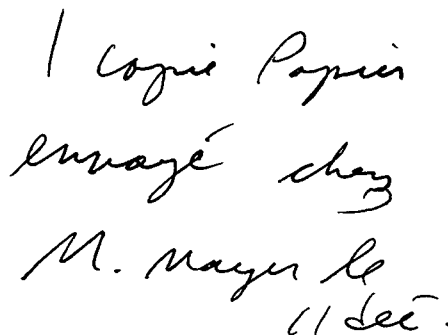 1 copie Papier
envoyé chez
M. Mayer le
11 déc.